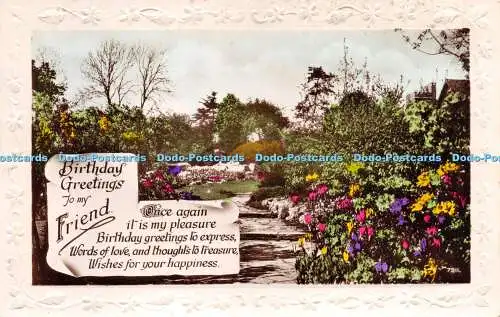 Birthday
Greetings
To my
Friend
Once again
it is my pleasure
Birthday greetings to express,
Words of love, and thoughts to treasure,
Wishes for your happiness.
Dodo-Postcards © Dodo-Postcards © Dodo-Postcards © Dodo-Postcards © Dodo-Postcards